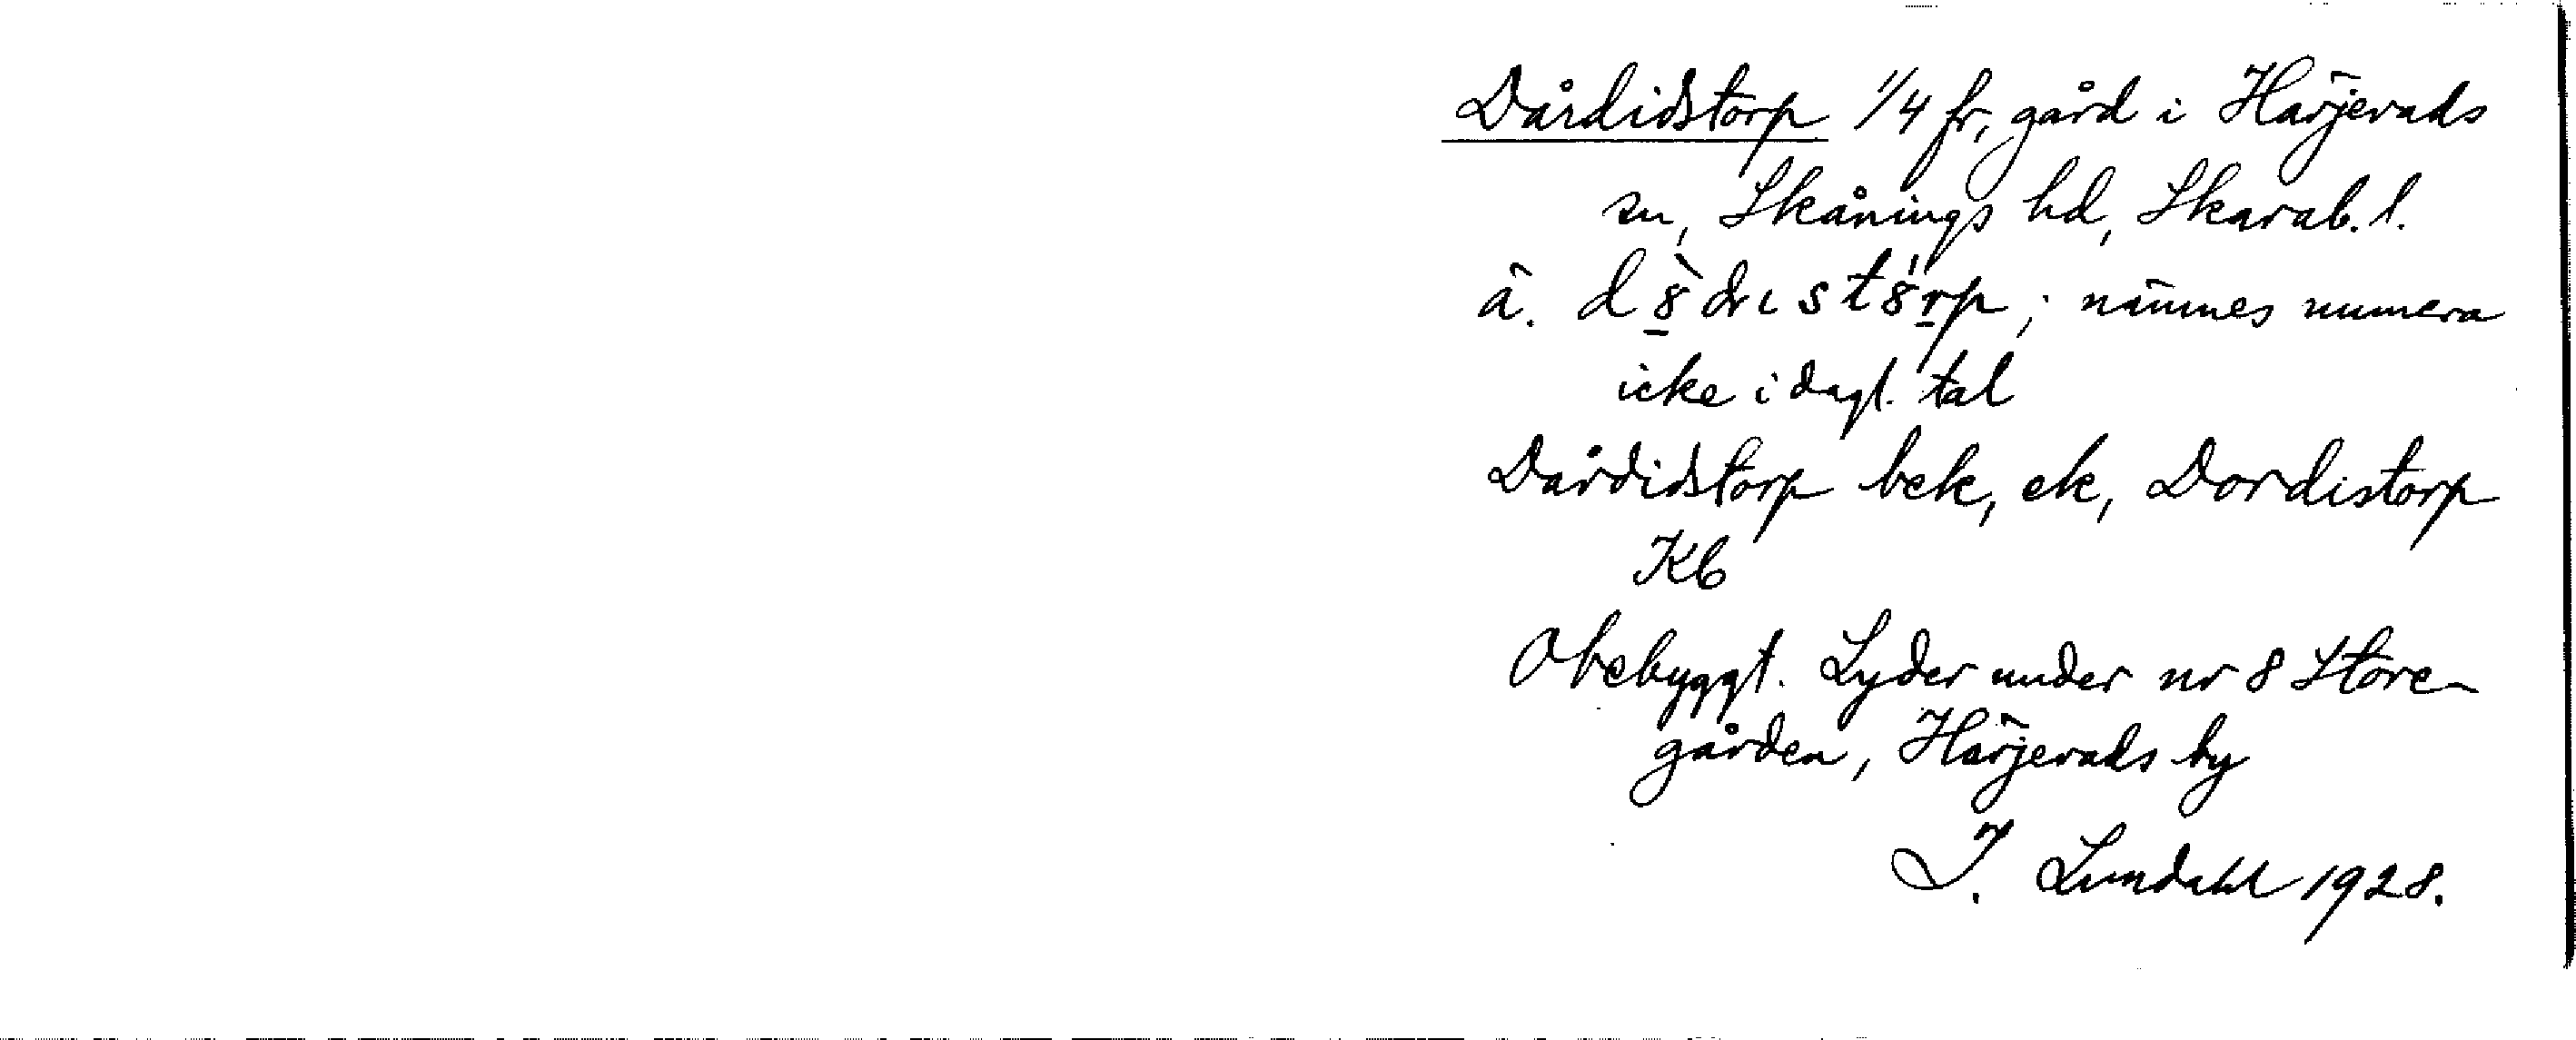 Dårdidstorp 1/4 fr, gård i Härjevads
sn, Skånings hd, Skarab. l.
ä. d8̠̀drıst8̍r̠p; nämnes numera
icke i dagl. tal
Dårdidstorp bek, ek, Dordistorp
Kb
Obebyggt. Lyder under nr 8 Store-
gården, Härjevads by
I. Lundahl 1928.